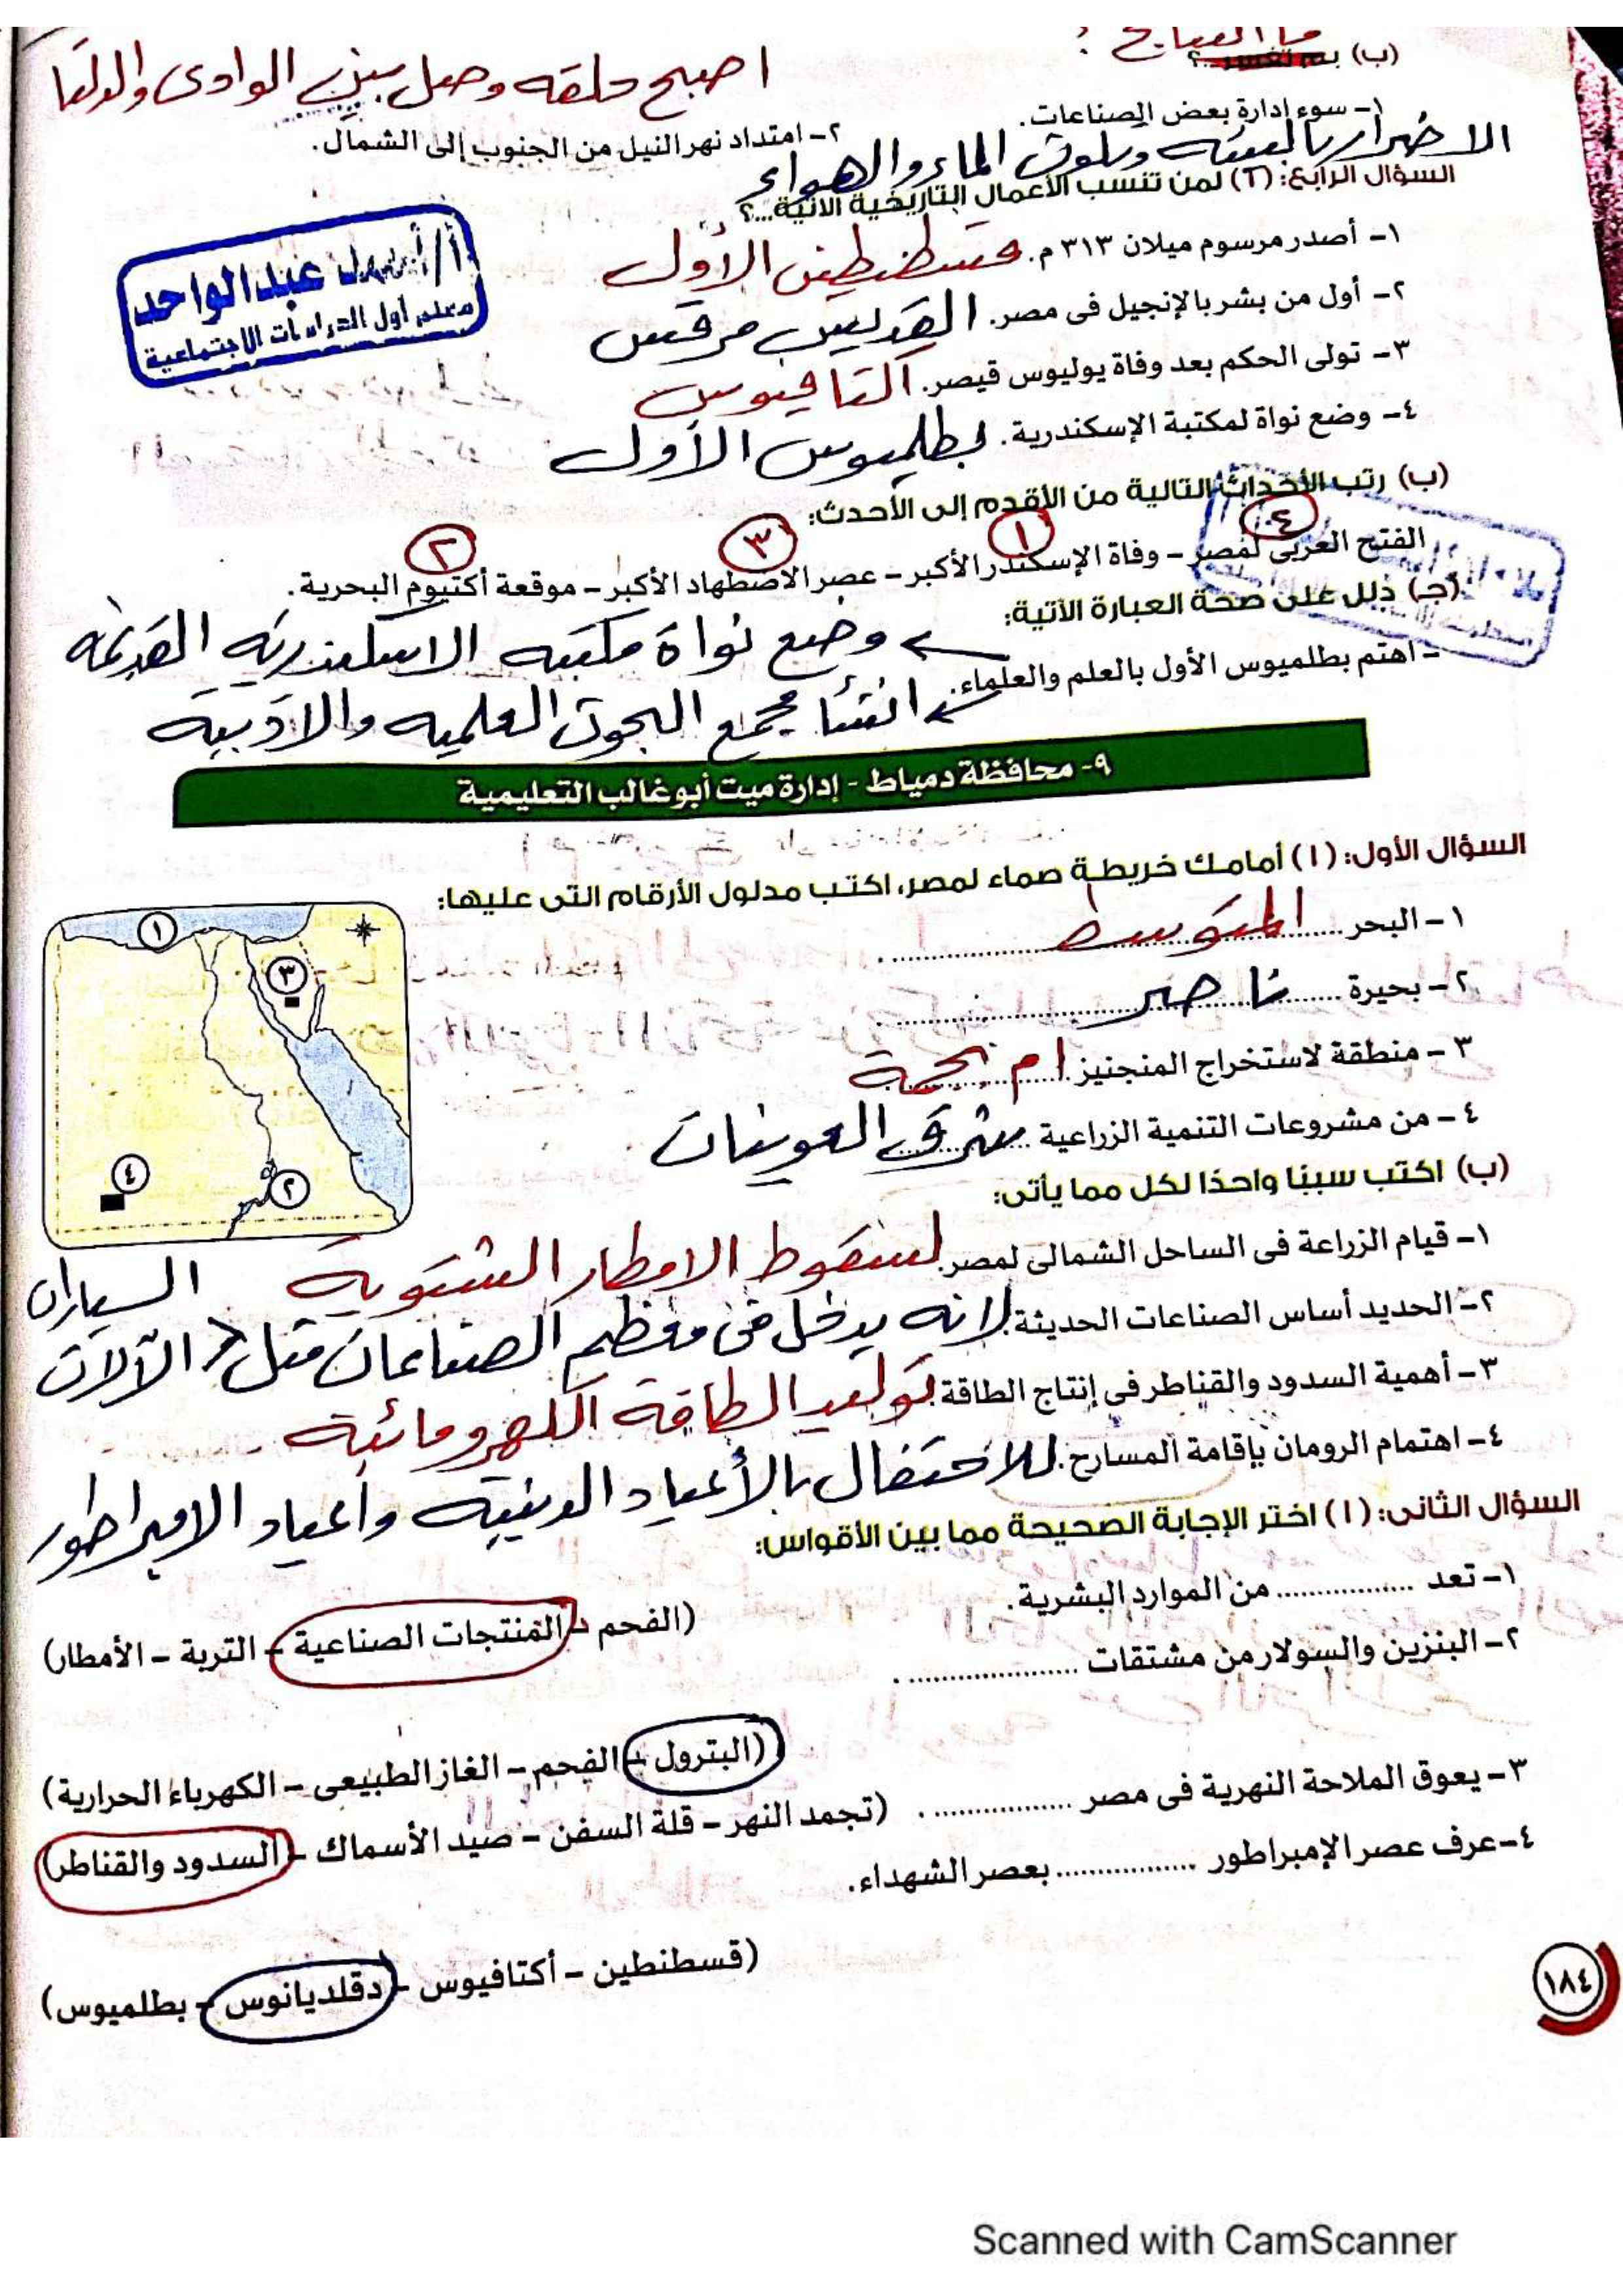 (ب) بم تفسر..؟ ما النتائج :
١- سوء إدارة بعض الصناعات.
الاضرار بالبيئه وتلوث الماء والهواء
٢- امتداد نهر النيل من الجنوب إلى الشمال.
اصبح حلقه وصل بين الوادى والدلتا
السؤال الرابع: (٢) لمن تنسب الأعمال التاريخية الآتية...؟
١- أصدر مرسوم ميلان ٣١٣ م. قسطنطين الأول
٢- أول من بشر بالإنجيل فى مصر. القديس مرقس
٣- تولى الحكم بعد وفاة يوليوس قيصر. اكتافيوس
٤- وضع نواة لمكتبة الإسكندرية. بطلميوس الأول
عبد الواحد
معلم أول الدراسات الاجتماعية
(ب) رتب الأحداث التالية من الأقدم إلى الأحدث:
٤ ١ ٣ ٢
الفتح العربى لمصر – وفاة الإسكندر الأكبر – عصر الاضطهاد الأكبر – موقعة أكتيوم البحرية.
(جـ) دلل على صحة العبارة الآتية:
- اهتم بطلميوس الأول بالعلم والعلماء.
وضع نواة مكتبه الاسكندريه القديمه
انشأ مجمع البحوث العلميه والادبية
٩- محافظة دمياط - إدارة ميت أبو غالب التعليمية
السؤال الأول: (١) أمامك خريطة صماء لمصر، اكتب مدلول الأرقام التى عليها:
١- البحر المتوسط
٢- بحيرة ناصر
٣- منطقة لاستخراج المنجنيز ام بجمة
٤- من مشروعات التنمية الزراعية شرق العوينات
١
٣
٤
٢
(ب) اكتب سببًا واحدًا لكل مما يأتى:
١- قيام الزراعة فى الساحل الشمالى لمصر. لسقوط الامطار الشتوية
٢- الحديد أساس الصناعات الحديثة. لانه يدخل فى معظم الصناعات مثل السيارات الآلات
٣- أهمية السدود والقناطر فى إنتاج الطاقة. توليد الطاقة الكهرومائية
٤- اهتمام الرومان بإقامة المسارح. للاحتفال بالأعياد الدينية وأعياد الامبراطور
السؤال الثانى: (١) اختر الإجابة الصحيحة مما بين الأقواس:
١- تعد ................ من الموارد البشرية.
(الفحم – المنتجات الصناعية – التربة – الأمطار)
٢- البنزين والسولار من مشتقات ................ .
(البترول – الفحم – الغاز الطبيعى – الكهرباء الحرارية)
٣- يعوق الملاحة النهرية فى مصر ................ . (تجمد النهر – قلة السفن – صيد الأسماك – السدود والقناطر)
٤- عرف عصر الإمبراطور ................ بعصر الشهداء.
(قسطنطين – أكتافيوس – دقلديانوس – بطلميوس)
١٨٤
Scanned with CamScanner